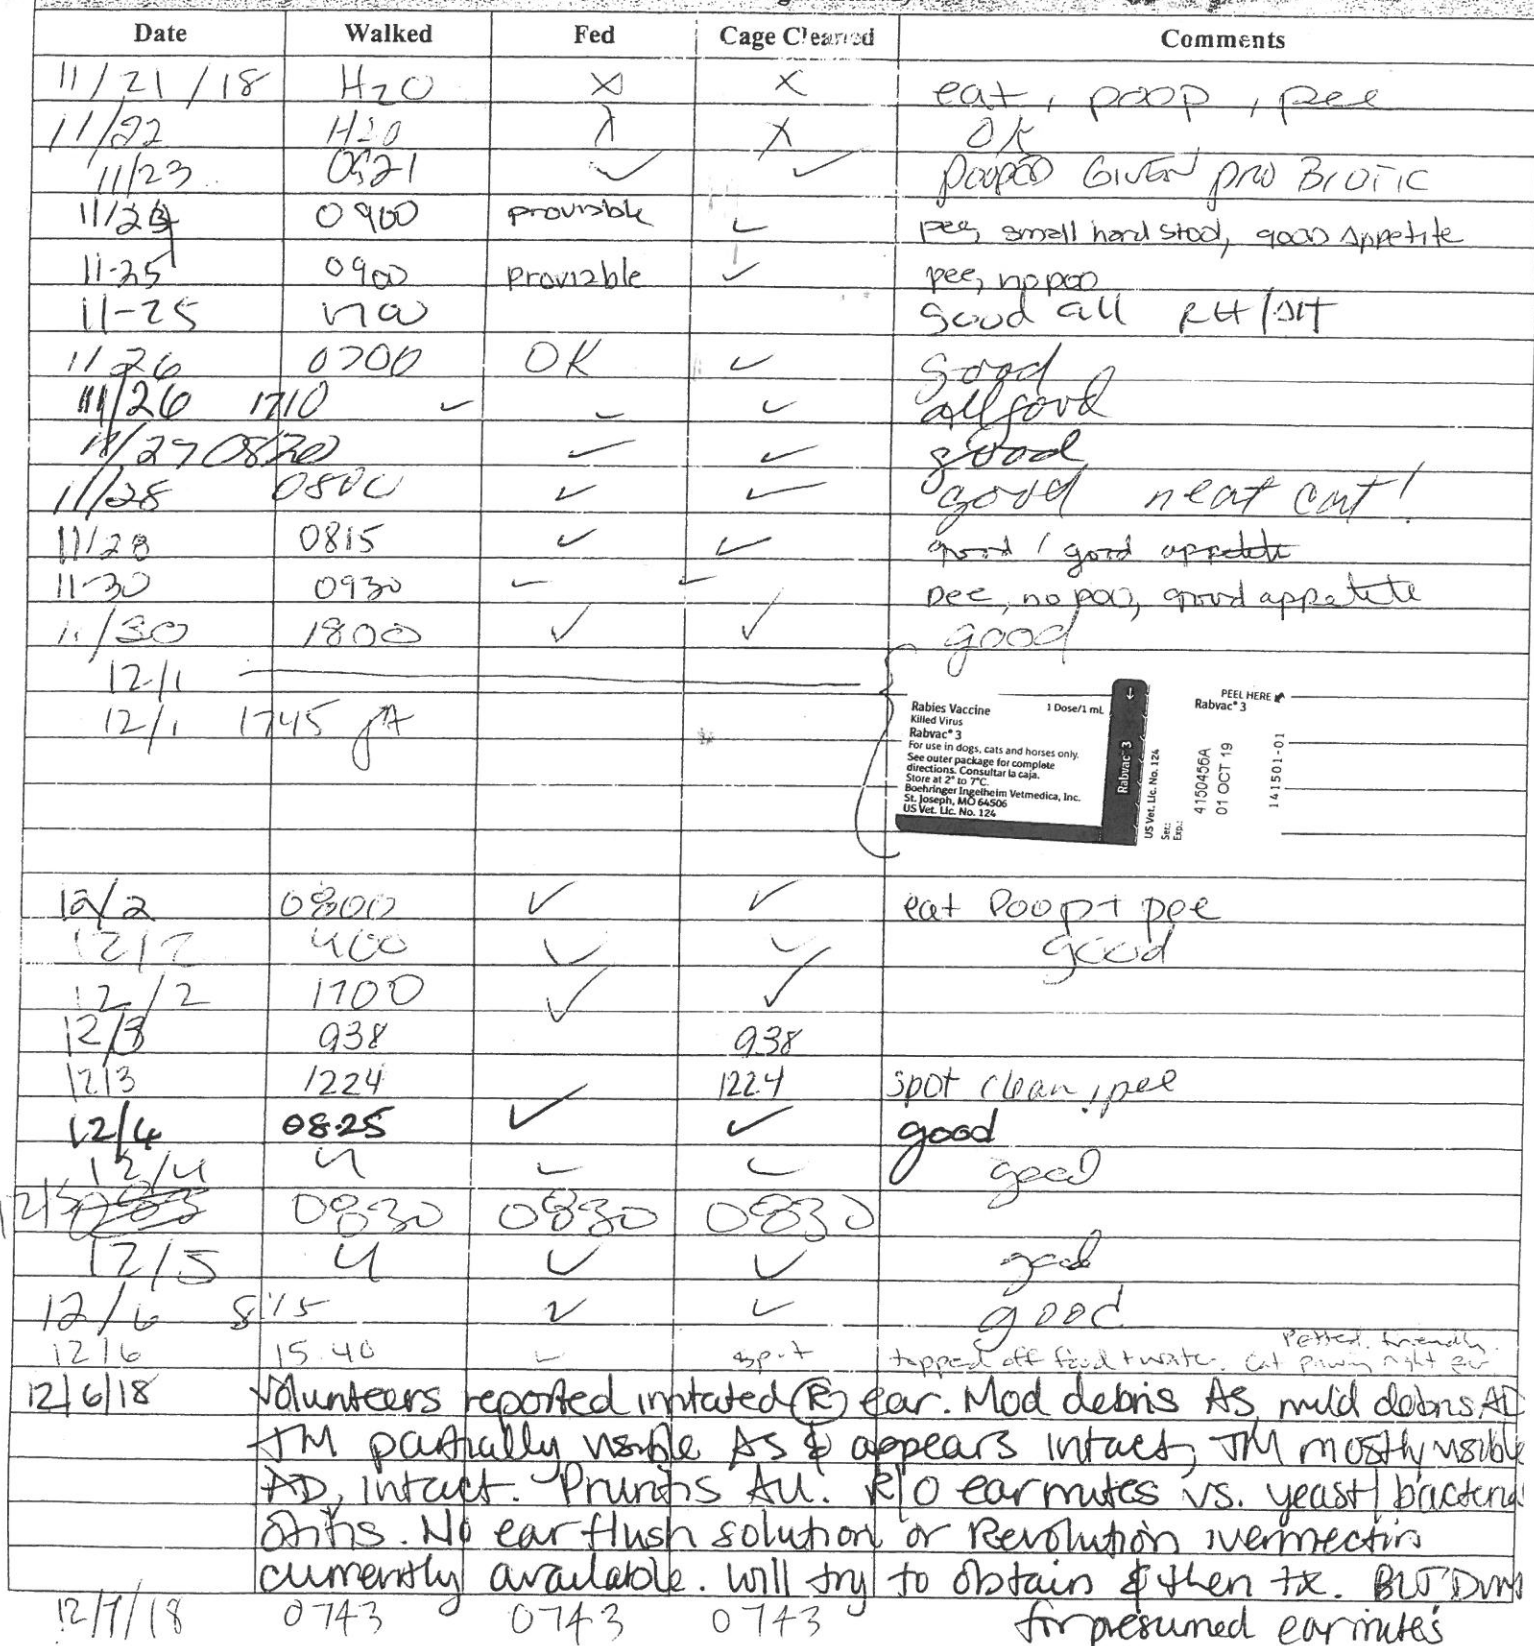 Date Walked Fed Cage Cleaned Comments
11/21/18 H2O X X eat, poop, pee
11/22 H20 X X OK
11/23 0921 ✓ ✓ pooped GIVEN pro BIOTIC
11/24 0900 provisble ✓ pee, small hard stool, good Appetite
11-25 0900 provizble ✓ pee, no poo
11-25 1700 good all
11/26 0700 OK ✓ Good
11/26 1710 ✓ ✓ ✓ all good
11/27 0820 ✓ ✓ good
11/28 0800 ✓ ✓ good neat cat!
11/28 0815 ✓ ✓ good / good appetite
11-30 0930 ✓ ✓ pee, no poo, good appetite
11/30 1800 ✓ ✓ good
12/1
12/1 1745
Rabies Vaccine 1 Dose/1 mL
Killed Virus
Rabvac® 3
For use in dogs, cats and horses only.
See outer package for complete
directions. Consultar la caja.
Store at 2° to 7°C.
Boehringer Ingelheim Vetmedica, Inc.
St. Joseph, MO 64506
US Vet. Lic. No. 124
Rabvac® 3
US Vet. Lic. No. 124
PEEL HERE
Rabvac® 3
Ser.: 4150456A
Exp.: 01 OCT 19
141501-01
12/2 0800 ✓ ✓ eat Poop + pee
12/2 400 ✓ ✓ good
12/2 1700 ✓ ✓
12/3 938 938
12/3 1224 1224 spot clean, pee
12/4 08:25 ✓ ✓ good
12/4 4 ✓ ✓ good
12/5 0830 0830 0830
12/5 4 ✓ ✓ good
12/6 8:15 ✓ ✓ good
12/6 15:40 ✓ spot topped off food + water. Petted, friendly. Cat pawing right ear
12/6/18 Volunteers reported irritated (R) ear. Mod debris AS, mild debris AD
TM partially visible AS & appears intact, TM mostly visible
AD, intact. Pruritis AU. R/O earmites vs. yeast/bacterial
otitis. No ear flush solution or Revolution ivermectin
currently available. Will try to obtain & then tx.
for presumed earmites
12/7/18 0743 0743 0743